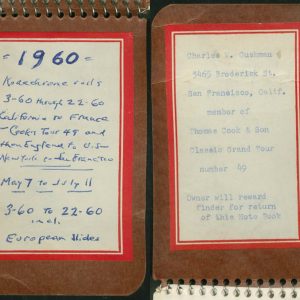 = 1960 =
Kodachrome rolls
3-60 through 22-60
California to France
Cooks Tour 49 and
then England to U.S.
New York to San Francisco
May 7 to July 11
3-60 to 22-60
incl.
European Slides
Charles W. Cushman
3465 Broderick St.
San Francisco, Calif.
member of
Thomas Cook & Son
Classic Grand Tour
number 49
Owner will reward
finder for return
of this Note Book